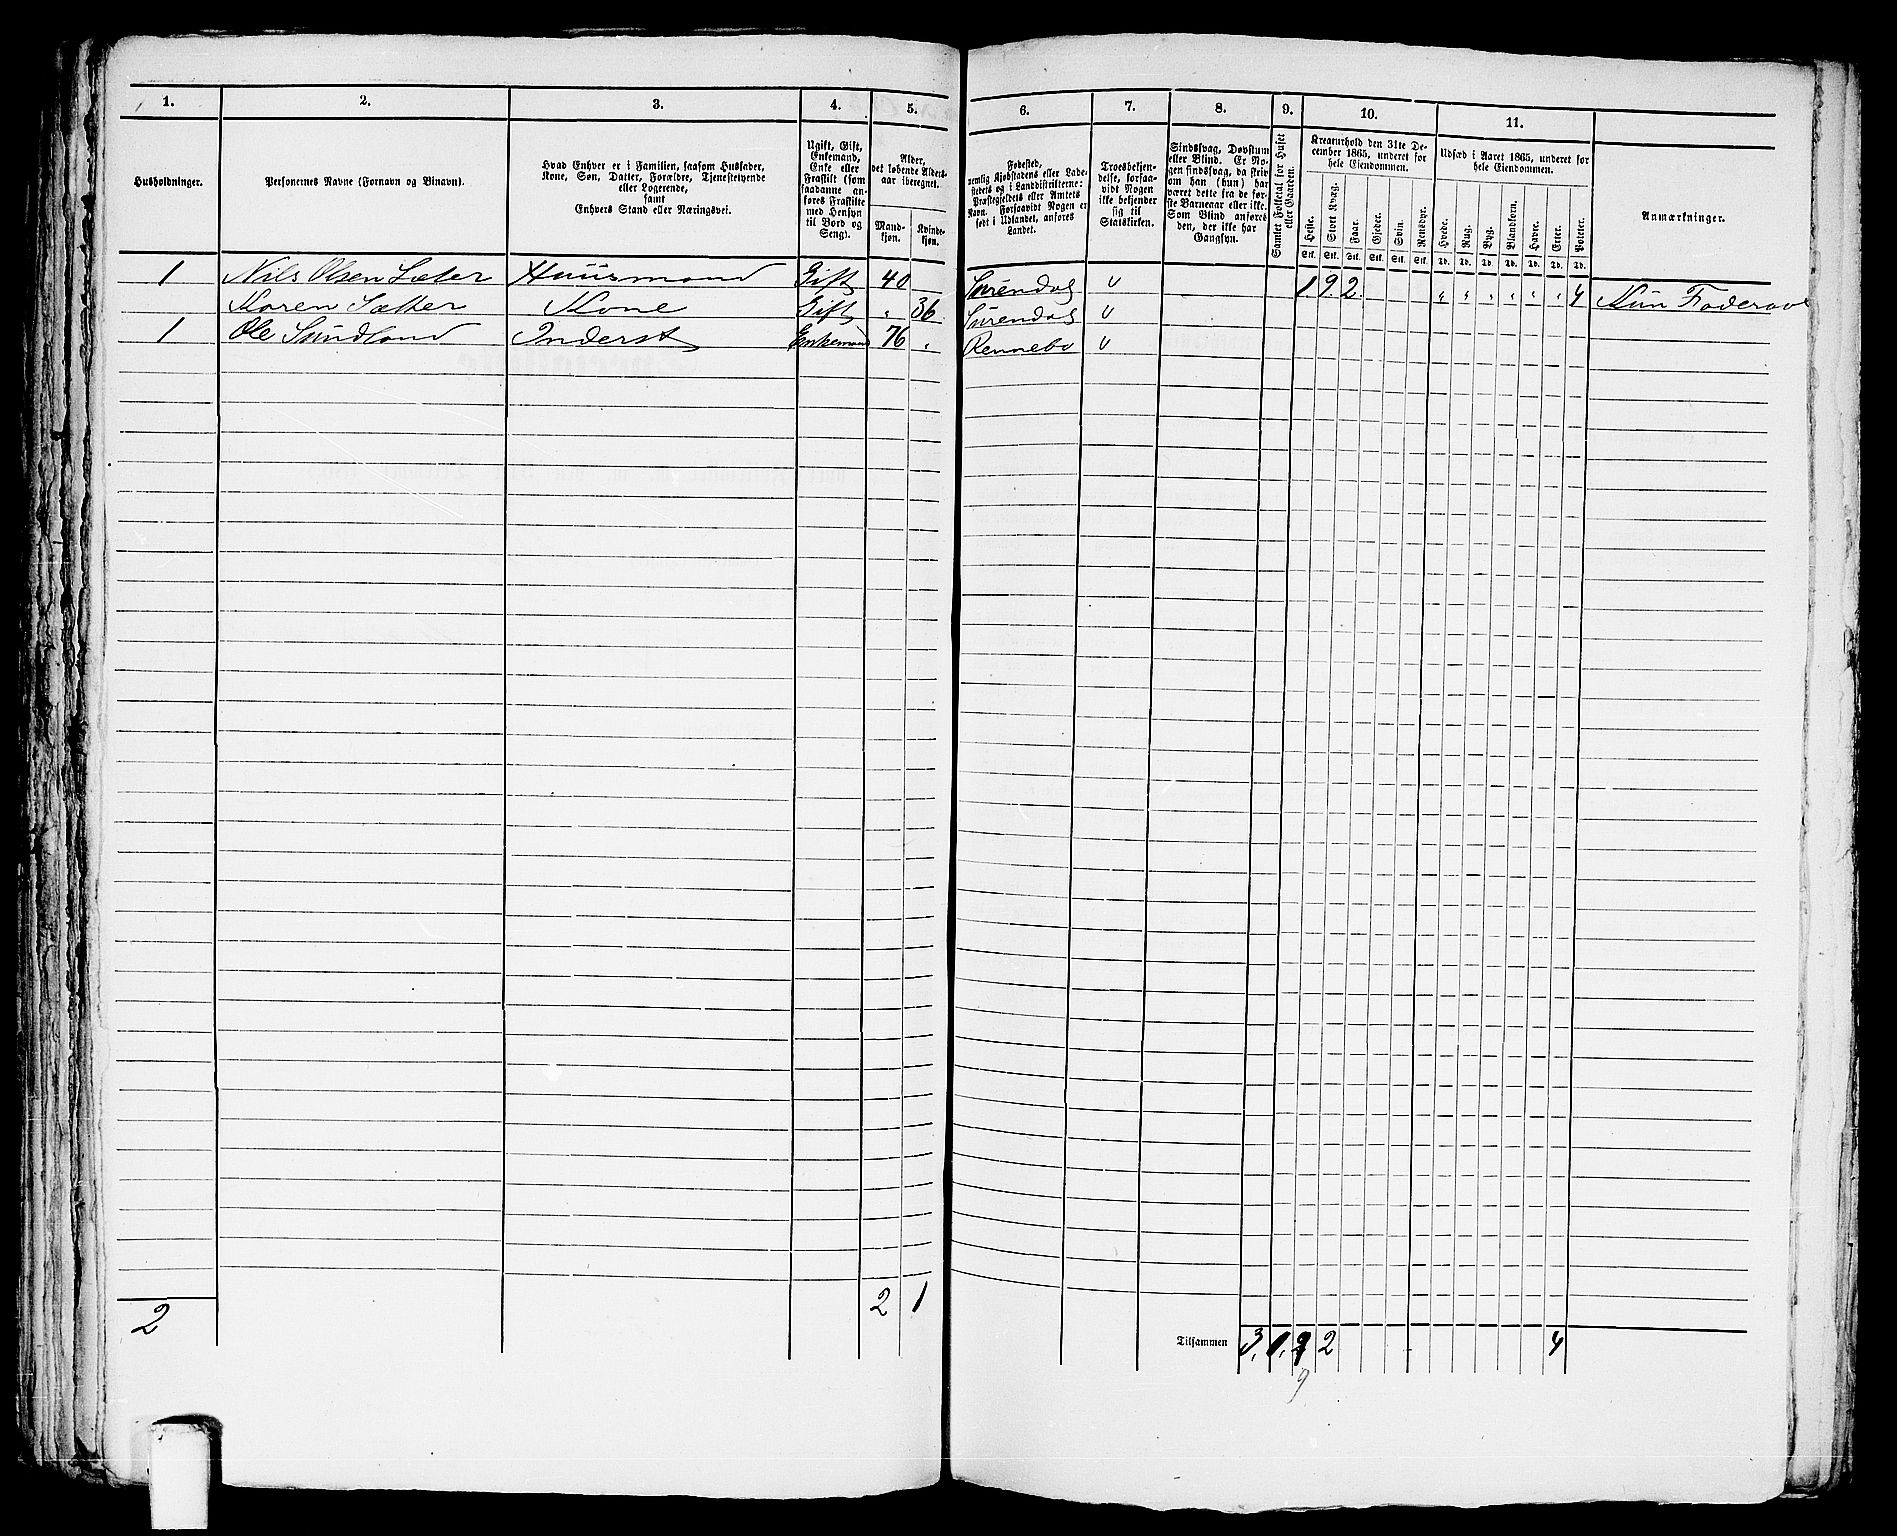 1. 2. 3. 4. 5. 6. 7. 8. 9. 10. 11.
Husholdninger.
Personernes Navne (Fornavn og Binavn).
Hvad Enhver er i Familien, saasom Husfader,
Kone, Søn, Datter, Forældre, Tjenestetyende
eller Logerende,
samt
Enhvers Stand eller Næringsvei.
Ugift, Gift,
Enkemand,
Enke eller
Fraskilt (som
saadanne an-
føres Fraskilte
med Hensyn
til Bord og
Seng).
Alder,
det løbende Alders-
aar iberegnet.
Mand-
kjøn.
Kvinde-
kjøn.
Fødested,
nemlig Kjøbstadens eller Lade-
stedets og i Landdistrikterne:
Præstegjeldets eller Amtets
Navn. Forsaavidt Nogen er
født i Udlandet, anføres
Landet.
Troesbekjen-
delse, forsaa-
vidt Nogen
ikke bekjender
sig til
Statskirken.
Sindssvag, Døvstum
eller Blind. Er No-
gen sindssvag, da skriv
om han (hun) har
været dette fra de før-
ste Barneaar eller ikke.
Som Blind anføres
den, der ikke har
Gangsyn.
Samlet Folketal for Huset
eller Gaarden.
Kreaturhold den 31te De-
cember 1865, underet for
hele Eiendommen.
Heste. Stort Kvæg. Faar. Gjeder. Svin. Rensdyr.
Stk. Stk. Stk. Stk. Stk. Stk.
Udsæd i Aaret 1865, underet for
hele Eiendommen.
Hvede. Rug. Byg. Blandkorn. Havre. Erter. Poteter.
Td. Td. Td. Td. Td. Td. Td.
Anmærkninger.
1 Nils Olsen Sæter Huusmand Gift 40 Surendal 1 9 2 " " " " " " 4 Kun Foderav
Karen Sætter Kone Gift " 36 Surendal
1 Ole Sundland Inderst Enkemand 76 " Rennebo
2 2 1 Tilsammen 3 1 9 2 4
9